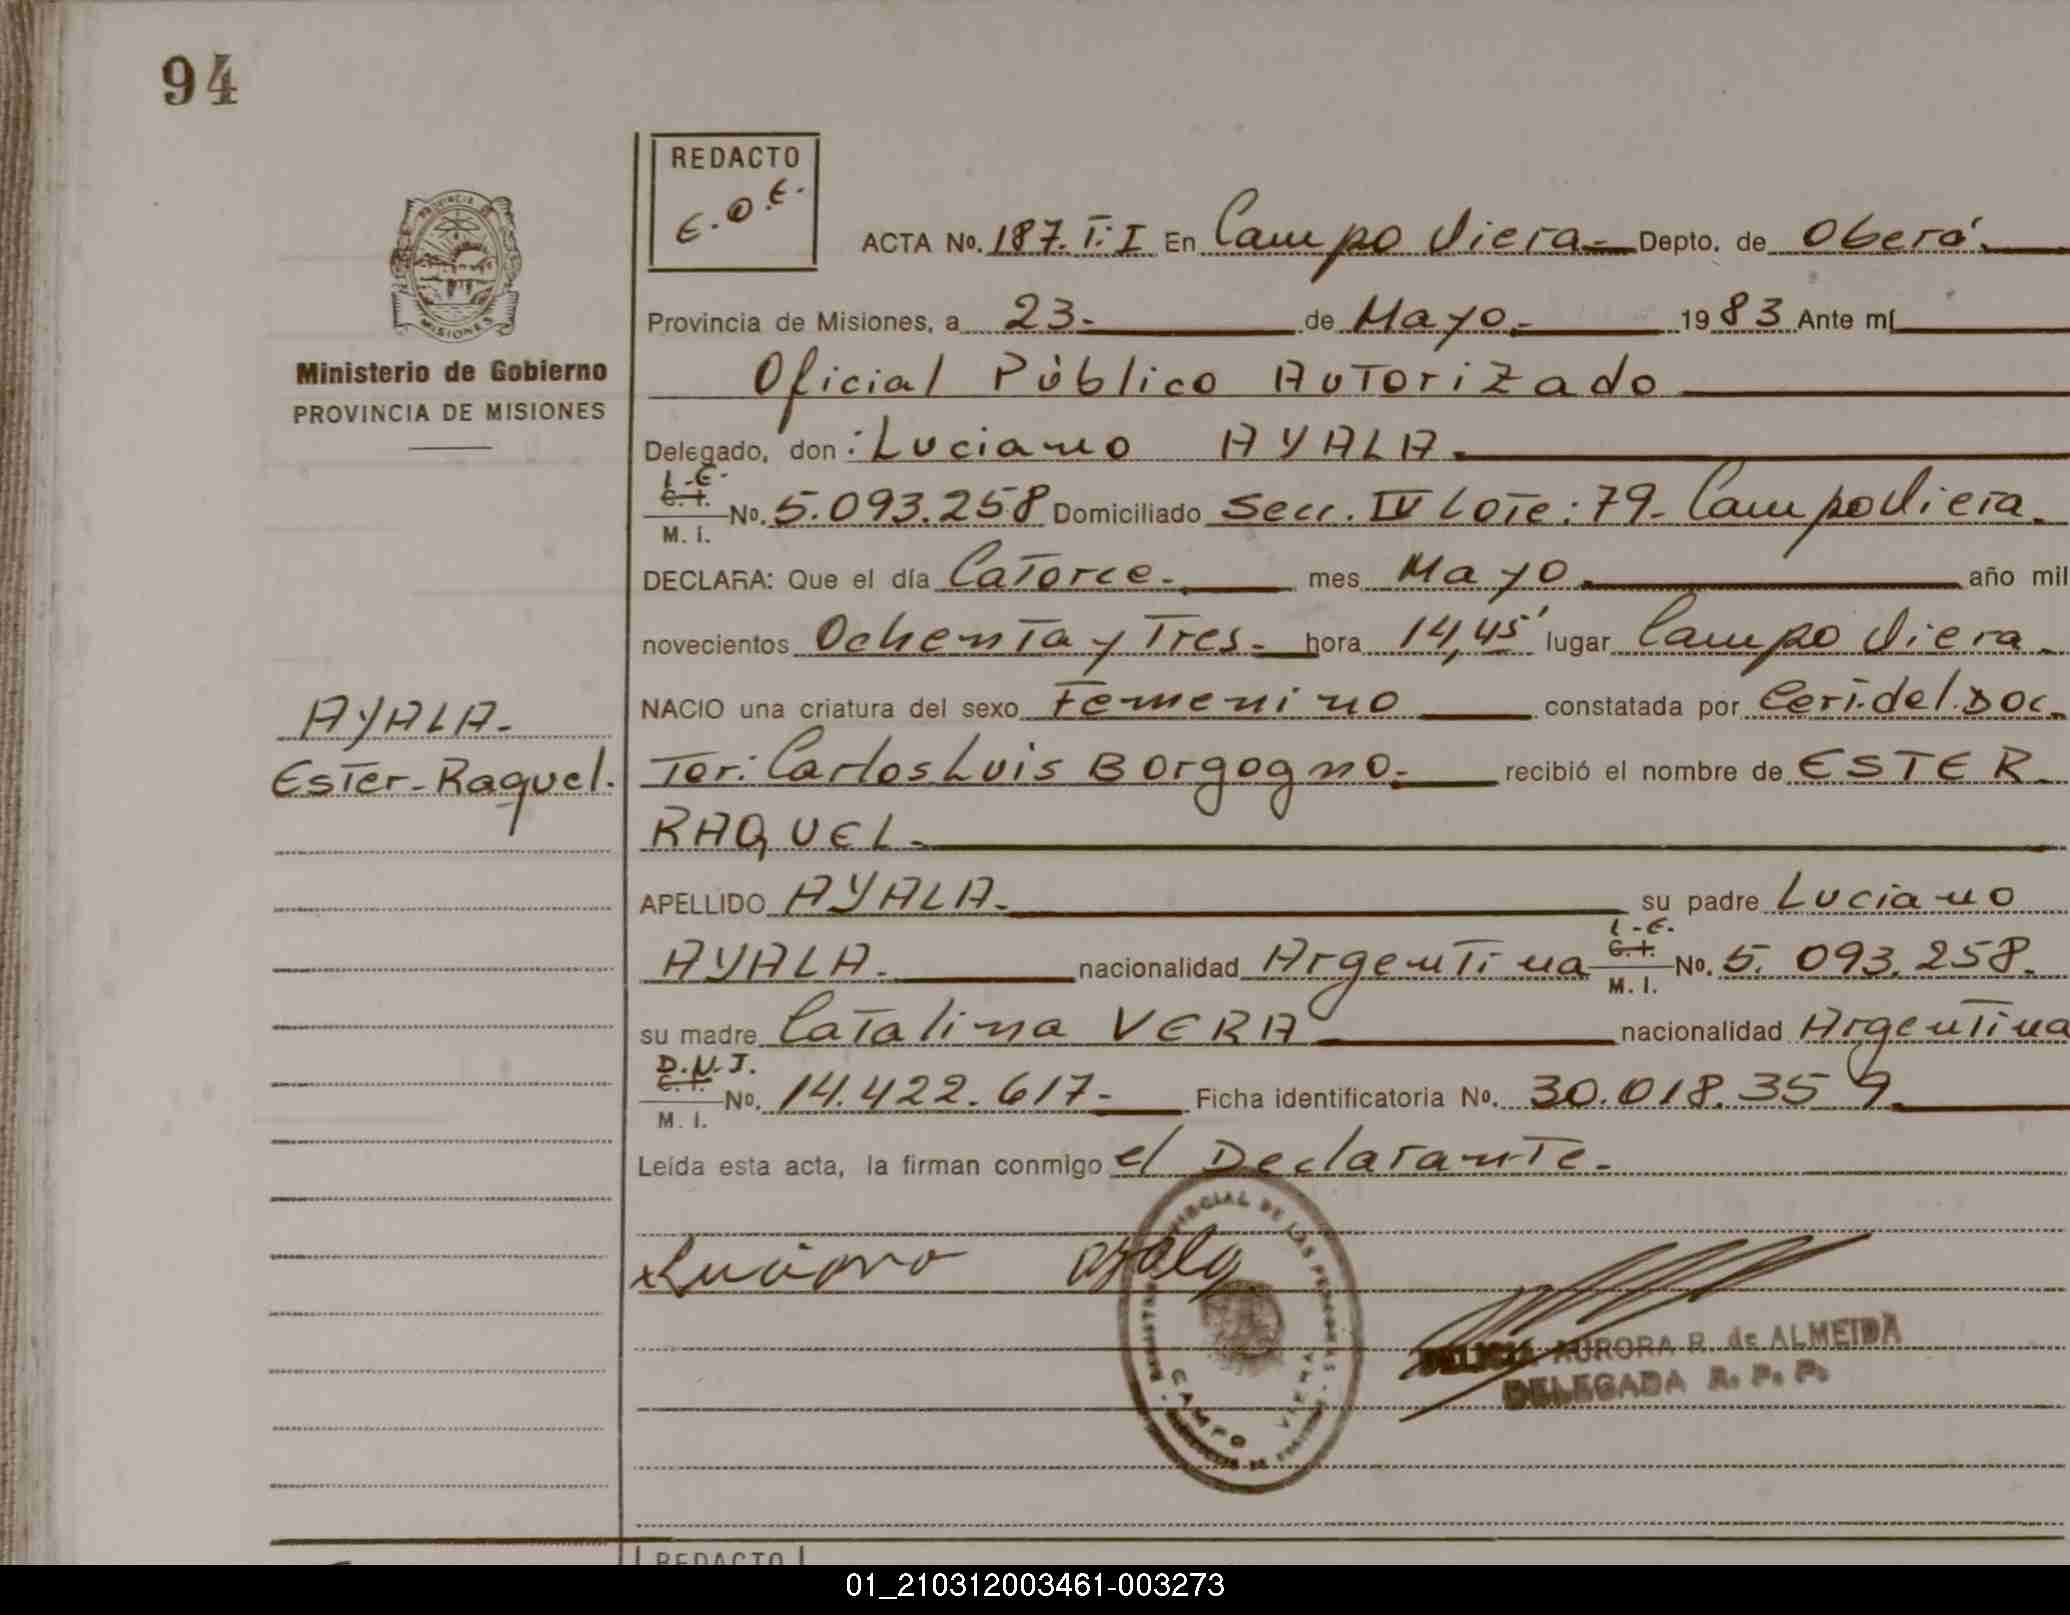 94
REDACTO
E.O.E.
PROVINCIA DE
MISIONES
Ministerio de Gobierno
PROVINCIA DE MISIONES
ACTA No. 187. T: I En Campo Viera.- Depto. de Oberá.
Provincia de Misiones, a 23.- de Mayo.- 1983 Ante mí
Oficial Público Autorizado
Delegado, don: Luciano AYALA.
L.E.
C.I.
M. I. No. 5.093.258 Domiciliado Secc. IV Lote: 79- Campo Viera.
DECLARA: Que el día Catorce.- mes Mayo. año mil
novecientos Ochenta y Tres.- hora 14,45' lugar Campo Viera.
NACIO una criatura del sexo Femenino constatada por Cert. del. Doc-
AYALA.-
Ester-Raquel.
tor: Carlos Luis Borgogno.- recibió el nombre de ESTER
RAQUEL.
APELLIDO AYALA.- su padre Luciano
AYALA. nacionalidad Argentina L.E. C.I. M. I. No. 5. 093. 258.
su madre Catalina VERA nacionalidad Argentina
D.N.I.
C.I.
M. I. No. 14.422.617.- Ficha identificatoria No. 30.018.359
Leída esta acta, la firman conmigo el Declarante.
Luciano Ayala
PROVINCIAL DE LAS PERSONAS
CAMPO VIERA
DELICIA AURORA R. de ALMEIDA
DELEGADA R. P. P.
REDACTO
01_210312003461-003273